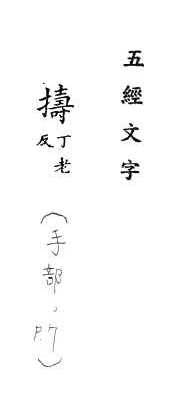 五經文字
擣丁老反
(手部。P.7)